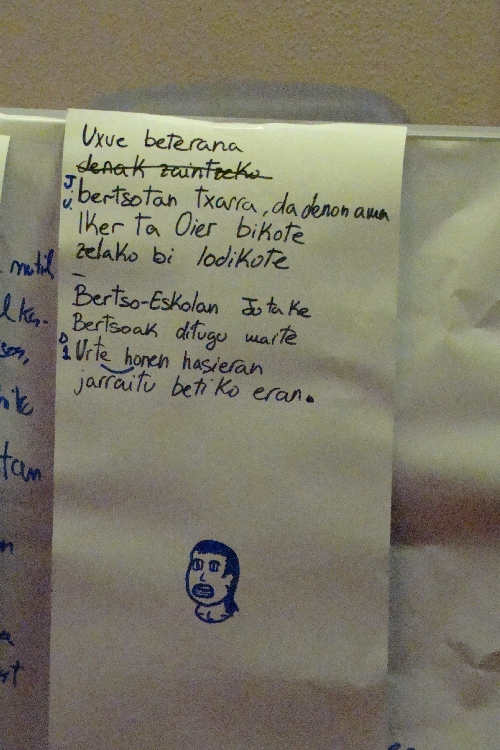 Uxue beterana
denak zaintzeko
J.U. bertsotan txarra, da denon ama
Iker ta Oier bikote
zelako bi lodikote
–
Bertso-Eskolan Jo ta ke
Bertsoak ditugu maite
Urte honen hasieran
jarraitu betiko eran.
mutil
tan